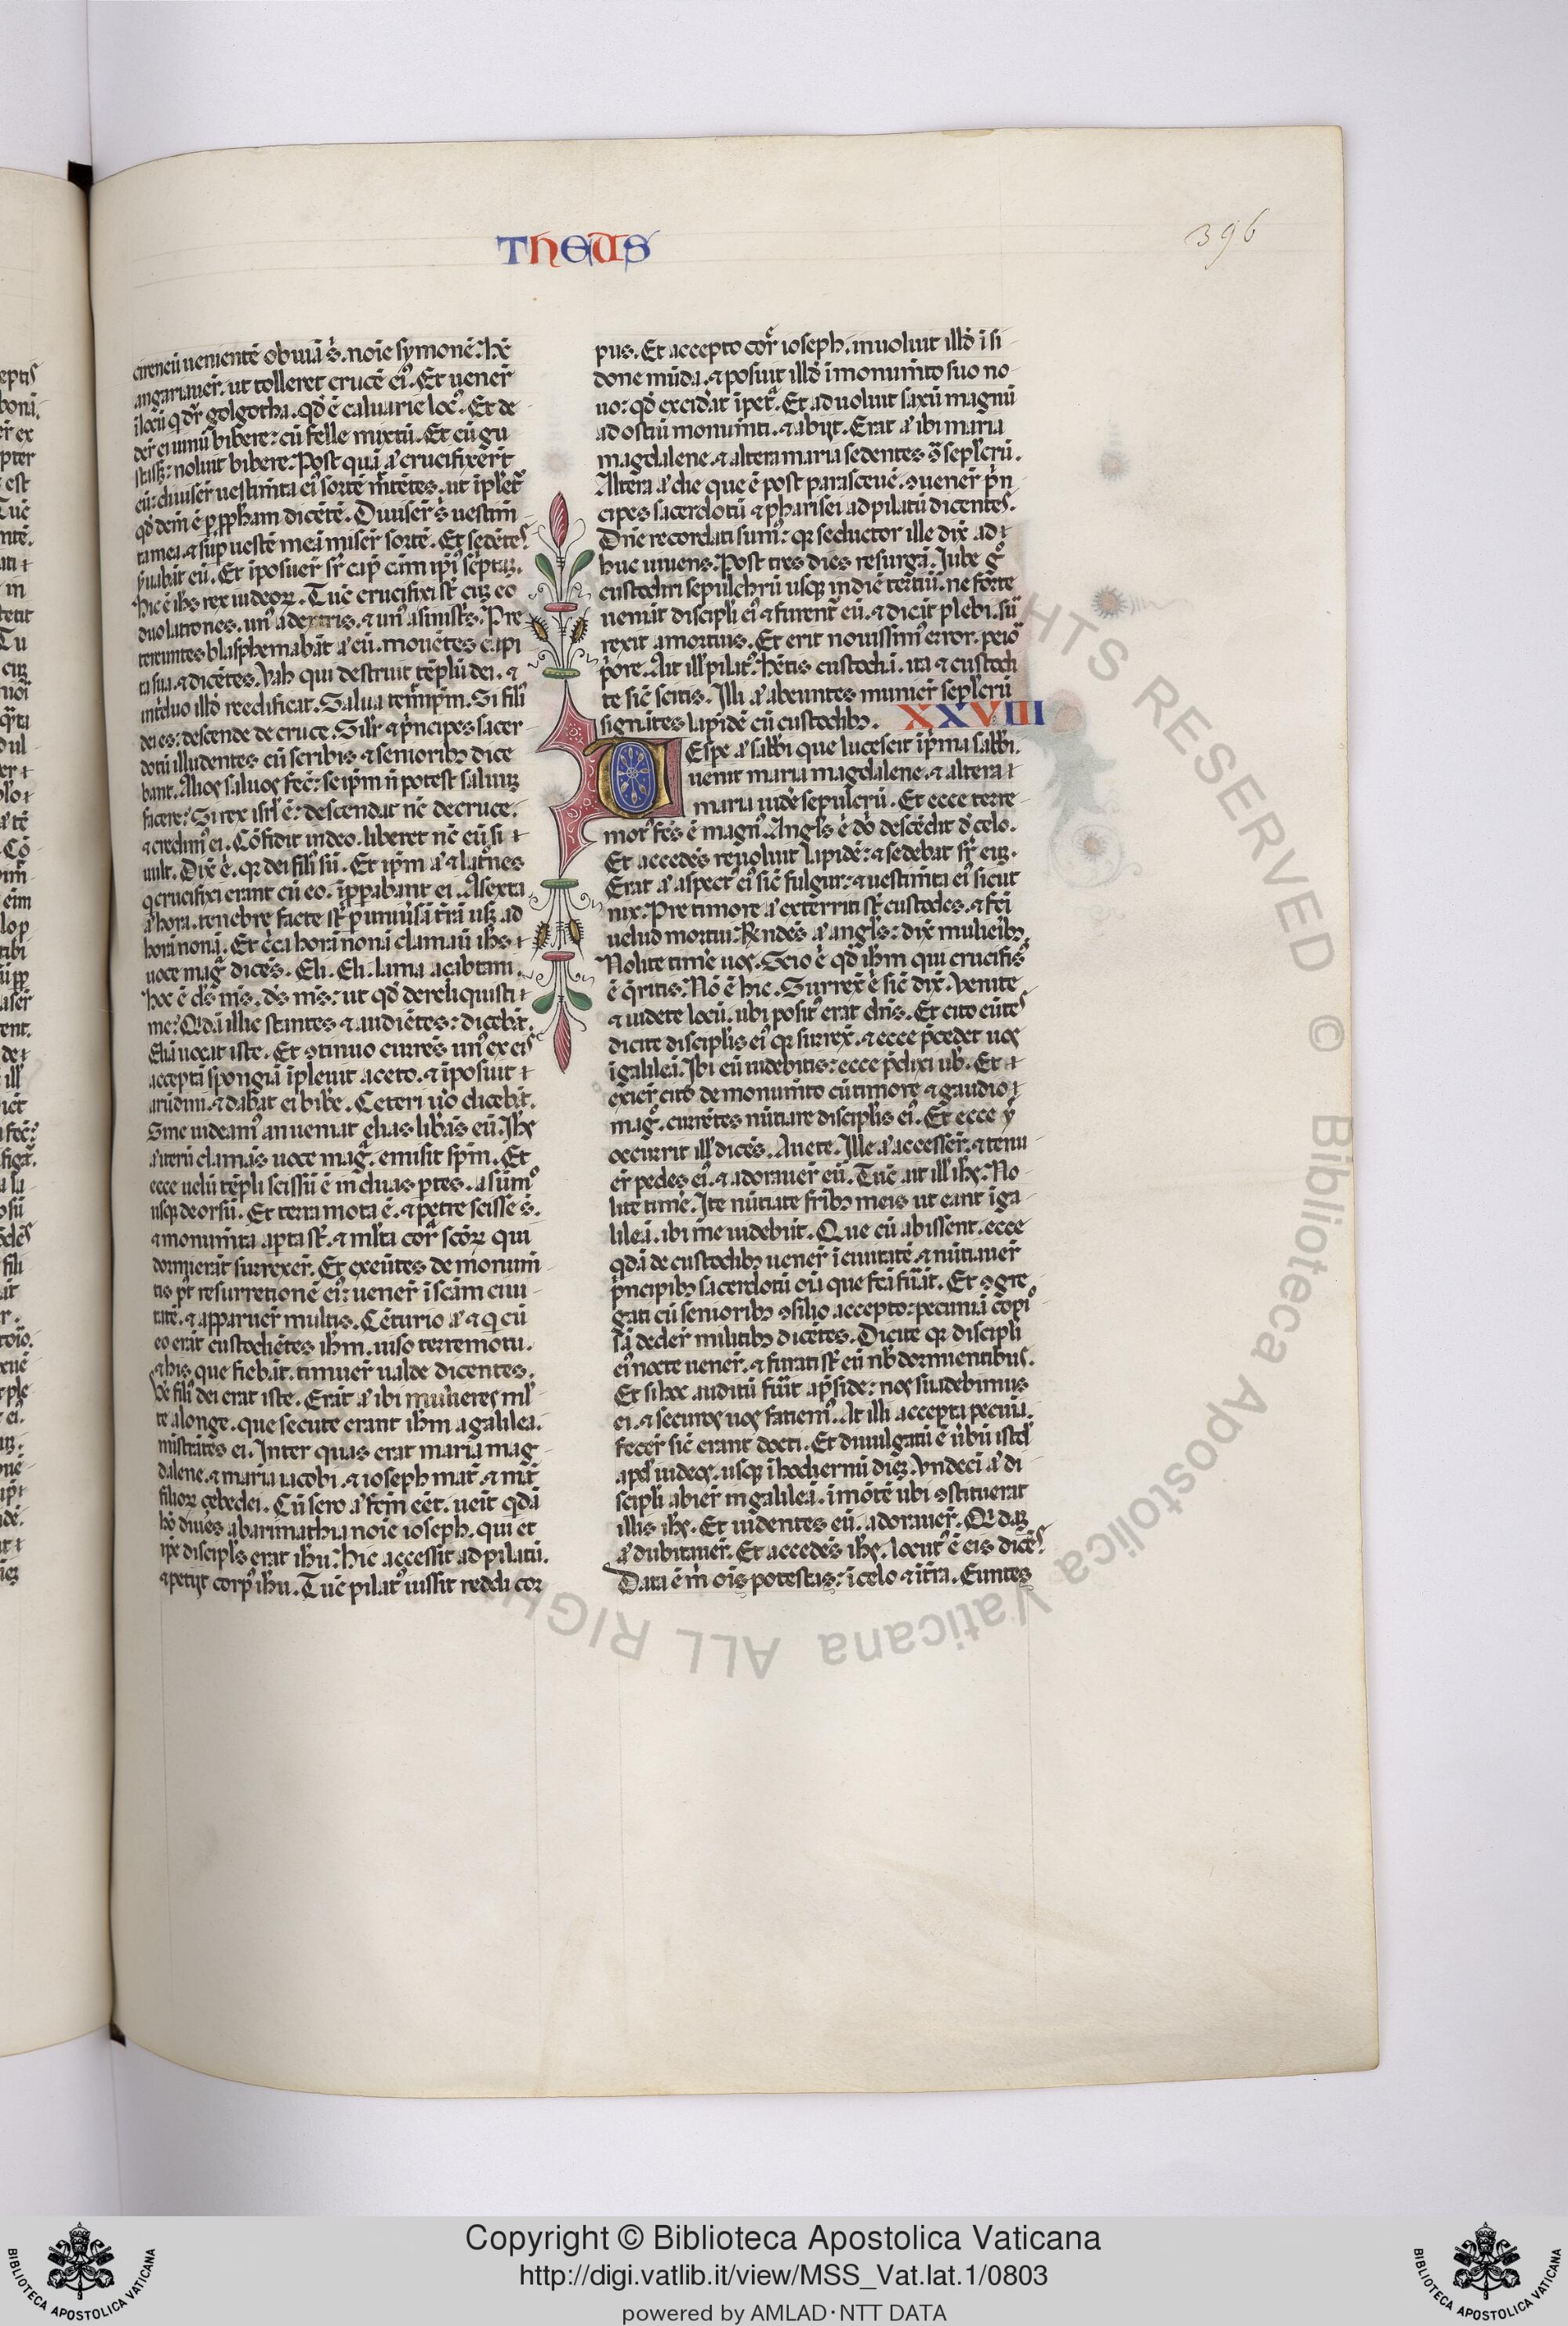 THEUS
396
cireneū uenientē obuiā ṡ. noīe symonē: hc̄
angariauer̄. ut tolleret crucē ei᷒. Et uener̄
ī locū q dr̄ golgotha. qd̄ ē caluarie loc᷒. Et de
der̄ ei uinū bibere: cū felle mixtū. Et cū gu
stasꝫ: noluit bibere. Post quā aͨ crucifixer̄t
eū: diuiser̄ uestim̄ta ei᷒ sortē mīttētes. ut īplet᷑
qd̄ dcm̄ ē p pp̄ham dicētē. Diuiser̄ ṡ uestim̄
ta mea. ⁊ sup uestē meā miser̄ sortē. Et sedētes
ẏuabāt eū. Et īposuer̄ sr̄ cap᷒ cām ip̄i᷒ sc̄ptaꝫ.
hic ē ih̄s rex iudeoꝝ. Tūc crucifixi st̄ cuꝫ eo
duo latrones. un᷒ a dextris. ⁊ un᷒ a sinist̄s. Pre
tereuntes blasphemabāt aͨ eū. mouētes capi
ta sua. ⁊ dicētes. Vah qui destruit tēplū dei. ⁊
in tͥduo illd̄ reedificat. Salua temꝛip̄m. Si fili᷒
dei es: descende de cruce. Silr̄ ⁊ pͥncipes sacer
dotū illudentes cū scribis ⁊ seniorib᷒ dice
bant. Alios saluos fec̄: seip̄m n̄ potest saluuꝫ
facere. Si rex isrl̄ ē: descendat nc̄ de cruce.
⁊ credim᷒ ei. Cōfidit in deo. liberet nc̄ eū si
uult. Dix̄ ē. qꝛ dei fili᷒ sū. Et ip̄m aͨ ⁊ latͦnes
q crucifixi erant cū eo. īpp̄abant ei. A sexta
aͨ hora. tenebre facte st̄ p uniuͥsā trā̄ usqꝫ ad
horā nonā. Et c̄ca horā nonā clamauͥ ih̄s
uoce magͣ dicēs. Eli. Eli. lama acabtani.
hoc ē ds̄ ms̄. ds̄ ms̄: ut qd̄ dereliquisti
me? Qͥdā illic stantes ⁊ audiētes: dicebāt.
Eliā uocat iste. Et ꝯtinuo currēs un᷒ ex eis
acceptā spongiā īpleuit aceto. ⁊ īposuit
arūdini. ⁊ dabat ei bibe. Ceteri uͦo dicebāt.
Sine uideam᷒ an ueniat elias libāns eū. Ih̄s
aͨ iterū clamās uoce magͣ. emisit sp̄m. Et
ecce uelū tēpli scissū ē in duas p̄tes. a sūmo
usqꝫ deorsū. Et terra mota ē. ⁊ petre scisse ṡ.
⁊ monum̄ta apta st̄. ⁊ ml̄ta corͣ sc̄oꝝ qui
dormierāt surrexer̄. Et exeūtes de monum̄
tis pt̄ resurretionē ei᷒: uener̄ ī sc̄am ciui
tatē. ⁊ apparuer̄ multis. Cēturio aͨ ⁊ q cū
eo erāt custodiētes ih̄m. uiso terremotu.
⁊ his que fiebāt. timuer̄ ualde dicentes.
Ve᷑ fili᷒ dei erat iste. Erāt aͨ ibi mulieres ml̄
te a longe. que secute erant ih̄m a galilea.
mīstrātes ei. Inter quas erat maria mag
dalene. ⁊ maria iacobi. ⁊ ioseph mat̄. ⁊ mat̄
filioꝝ çebedei. Cū sero aͨ fcm̄ eēt. ueit qͥdā
ho diues ab arimathia noīe ioseph. qui et
ip̄e discipls̄ erat ih̄u. hic accessit ad pilatū.
⁊ petijt corp᷒ ih̄u. Tūc pilat᷒ iussit reddi coꝛ
pus. Et accepto corꝑe ioseph. inuoluit illd̄ ī si
done mūda. ⁊ posuit illd̄ ī monum̄to suo no
uo: qd̄ exciderat ī petͣ. Et aduoluit saxū magnū
ad ostiū monum̄ti. ⁊ abijt. Erat aͨ ibi maria
magdalene. ⁊ altera maria sedentes ꝯͣ seplcrū.
Altera aͨ die que ē post parasceuē. ꝯuener̄ pͥn
cipes sacerdotū ⁊ pharisei ad pilatū dicentes.
Dn̄e recordati sum᷒: qꝛ seductor ille dix̄ ad
huc uiuens. Post tres dies resurgā. Jube gͦ
custodiri sepulchrū usqꝫ in diē tertiū. ne forte
ueniāt discipli ei᷒ ⁊ furent᷑ eū. ⁊ dicāt plebi. sur
rexit a mortuis. Et erit nouissim᷒ error. peio᷑
pͥore. Ait ill̄ pilat᷒. hētis custodiā. ita ⁊ custodi
te sic̄ scitis. Illi aͨ abeuntes munier̄ seplcrū
signātes lapidē cū custodib᷒. XXVIII
Vespe aͨ sabb̄i que lucescit ī pͥma sabb̄i.
uenit maria magdalene. ⁊ altera
maria uide sepulcrū. Et ecce terre
mot᷒ fcs̄ ē magn᷒. Angls̄ ē dn̄i descēdit d̄ celo.
Et accedēs reuoluit lapidē: ⁊ sedebat sr̄ euꝫ.
Erat aͨ aspect᷒ ei᷒ sic̄ fulgur: ⁊ uestim̄ta ei᷒ sicut
nix. Pre timore aͨ exterriti st̄ custodes. ⁊ fcī
uelud mortui. Rn̄dēs aͨ angls̄: dix̄ mulieib᷒.
Nolite tim̄e uos. Scio ē qd̄ ih̄m qui crucifix᷒
ē qͥritis. Nō ē hic. Surrex̄ ē sic̄ dix̄. Venite
⁊ uidete locū. ubi posit᷒ erat dn̄s. Et cito eūtes
dicite discipl̄is ei᷒ qꝛ surrex̄. ⁊ ecce pͨcedet uos
ī galileā. Ibi eū uidebitis: ecce pͨdixi ub̄. Et
exier̄ cito de monum̄to cū timore ⁊ gaudio
magͦ. currētes nūtiare discipl̄is ei᷒. Et ecce ih̄s
occurrit ill̄ dicēs. Auete. Ille aͨ accesser̄. ⁊ tenu
er̄ pedes ei᷒. ⁊ adorauer̄ eū. Tūc ait ill̄ ih̄s. No
lite tim̄e. Ite nūtiate frīb᷒ meis ut eant ī ga
lileā. ibi me uidebūt. Que cū abissent. ecce
qͥdā de custodib᷒ uener̄ ī ciuitatē. ⁊ nūtiauer̄
pͥncipib᷒ sacerdotū oīa que fcā fuͣāt. Et ꝯgre
gati cū seniorib᷒ ꝯsilio accepto: pecuniā copi᷒
sā deder̄ militib᷒ dicētes. Dicite qꝛ discipli
ei᷒ nocte uener̄. ⁊ furati st̄ eū nob̄ dormientibus.
Et si hoc auditū fuͥit a pͨside: nos suadebimus
ei. ⁊ securos uos faciem᷒. At illi accepta pecuīa.
fecer̄ sic̄ erant docti. Et diuulgatū ē ūbū istd̄
apd̄ iudeos. usqꝫ ī hodiernū dieꝫ. Vndeci aͨ di
scipli abier̄ in galileā. ī mōtē ubi ꝯstituerat
illis ih̄s. Et uidentes eū. adorauer̄. Qͥdaꝫ
aͨ dubitauer̄. Et accedēs ih̄s. locut᷒ ē eis dicēs.
Data ē m̄ oīs potestas: ī celo ⁊ ī tr̄a. Euntes
© Biblioteca Apostolica Vaticana ALL RIGHTS RESERVED
Copyright © Biblioteca Apostolica Vaticana
http://digi.vatlib.it/view/MSS_Vat.lat.1/0803
powered by AMLAD·NTT DATA
BIBLIOTECA APOSTOLICA VATICANA
BIBLIOTECA APOSTOLICA VATICANA